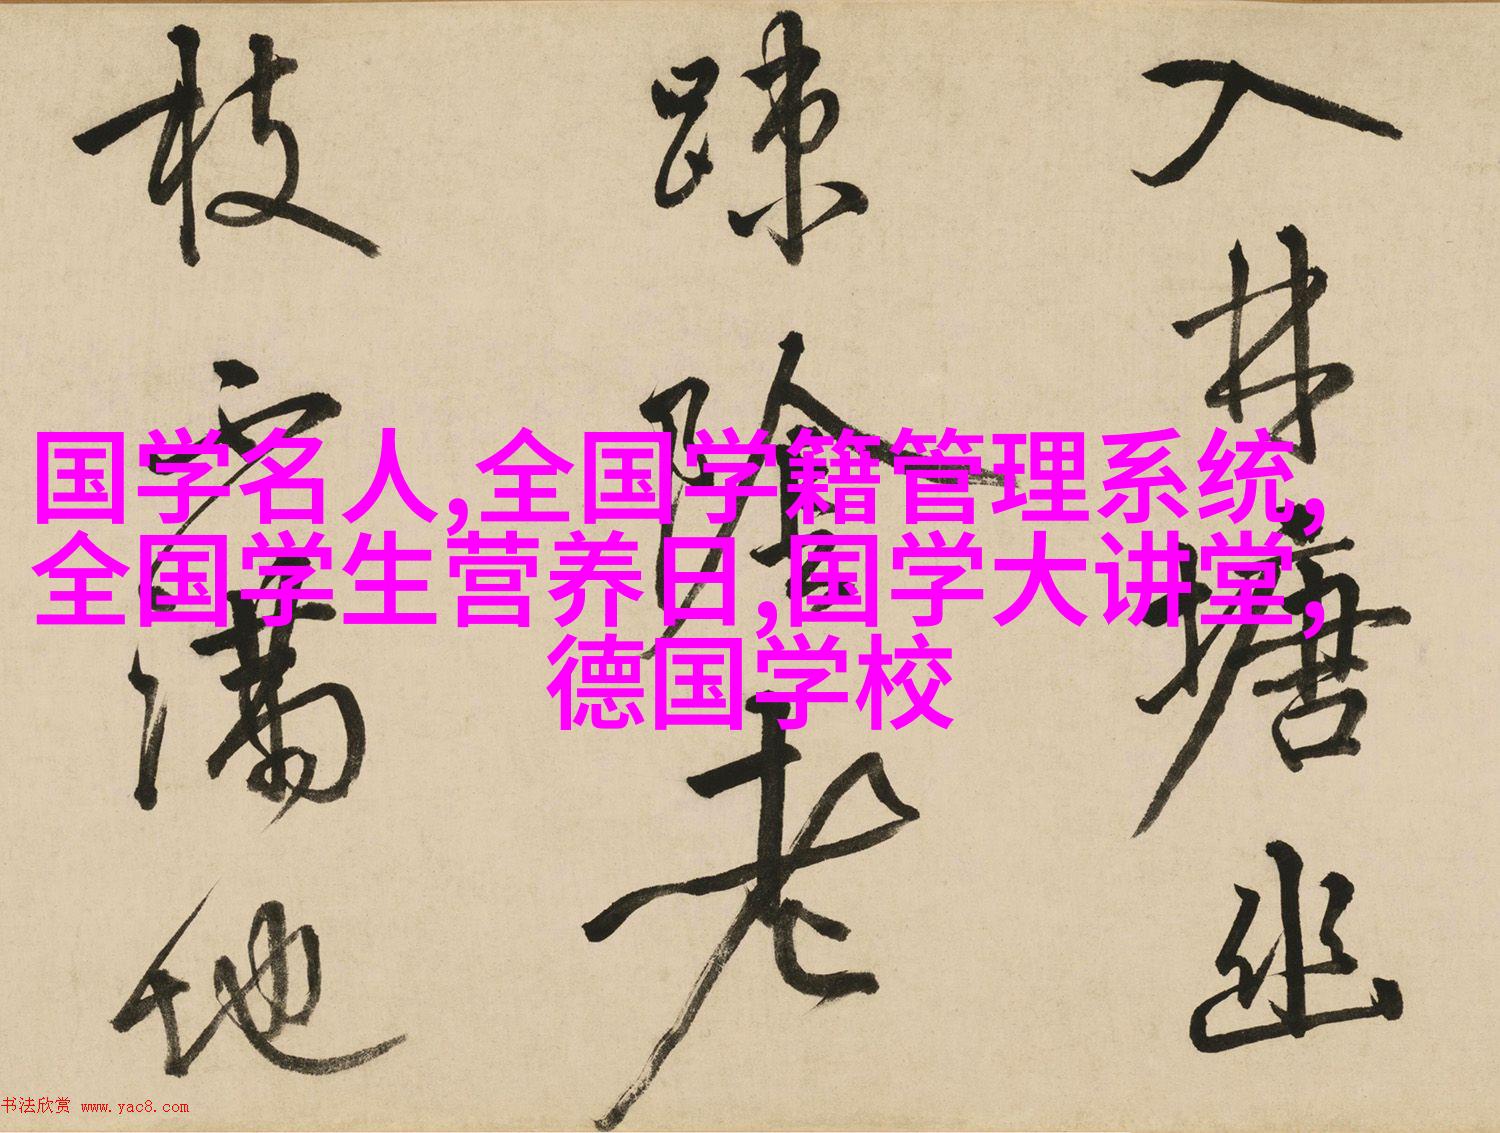 入林塘幽
疎陰老
枝
滿地
国学名人,全国学籍管理系统,
全国学生营养日,国学大讲堂,
德国学校
书法欣赏 www.yac8.com